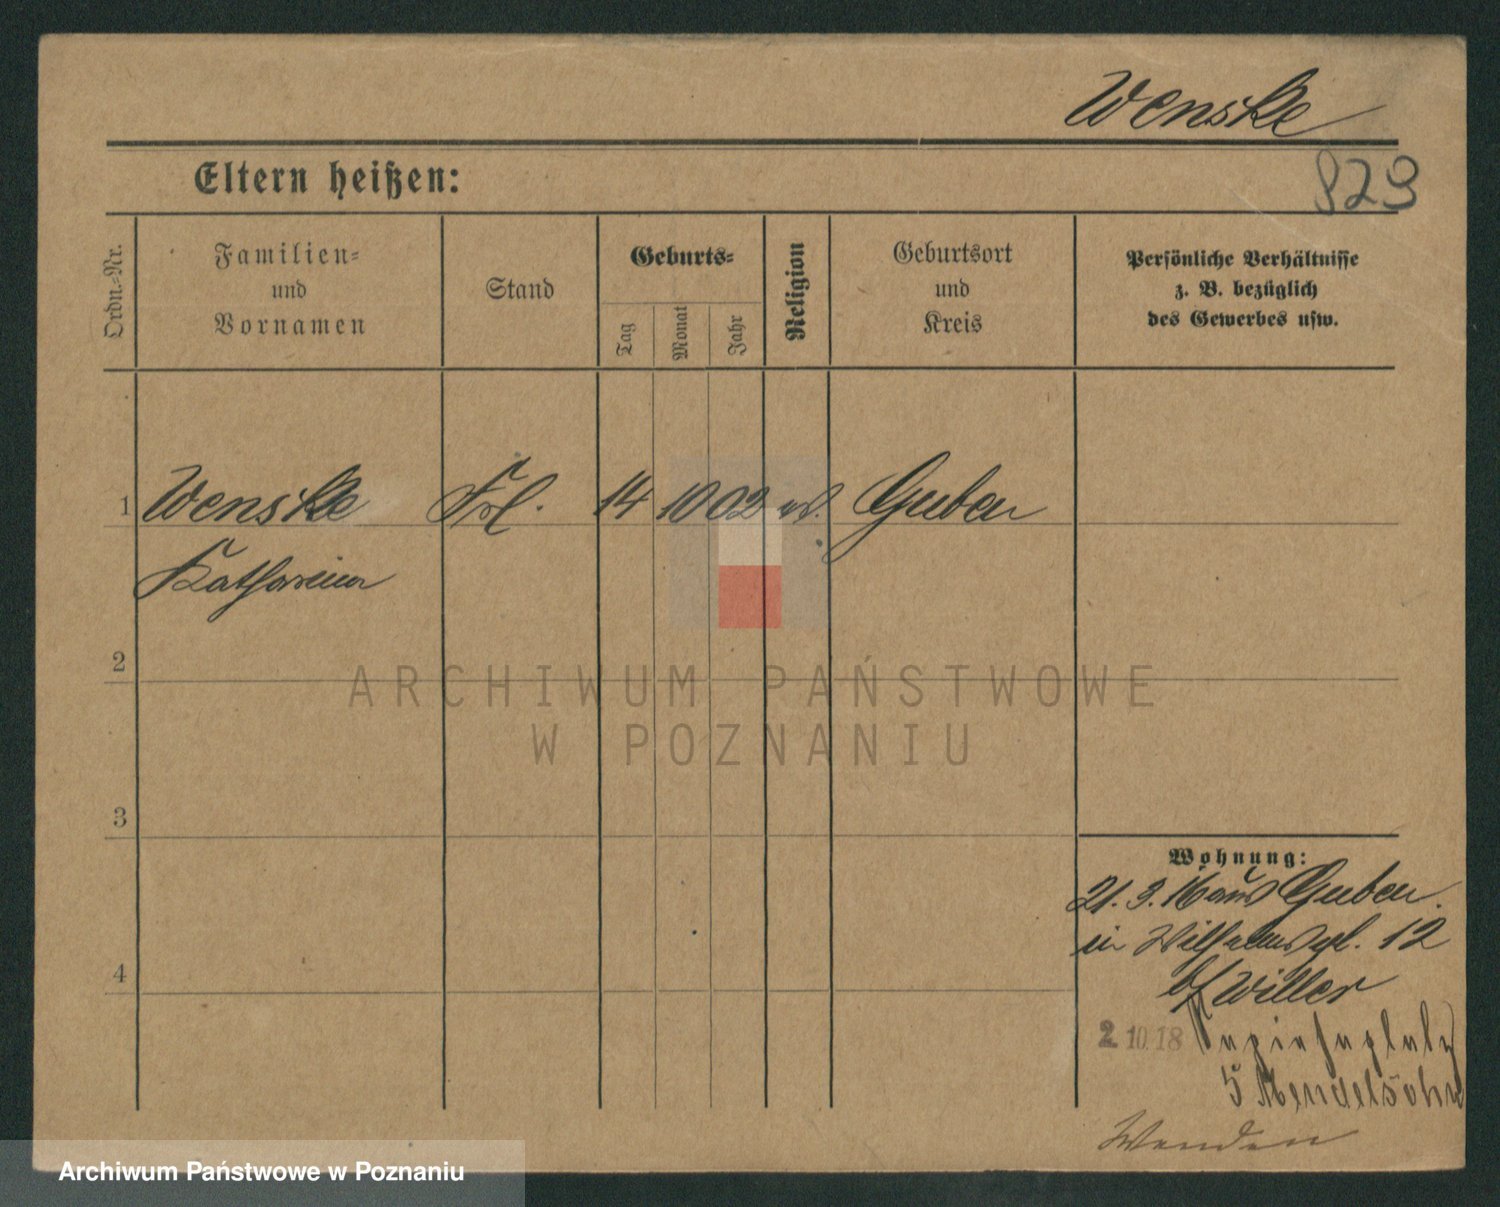 Wenske
829
Eltern heißen:
Ordn.-Nr.
Familien-
und
Vornamen
Stand
Geburts-
Tag
Monat
Jahr
Religion
Geburtsort
und
Kreis
Persönliche Verhältnisse
z. B. bezüglich
des Gewerbes usw.
1 Wenske Frl. 14 10 02 ev. Guben
Katharina
2
3
4
Wohnung:
21. 3. 16 aus Guben.
in Wilhelmspl. 12
b/ Willer
2 10. 18
5 Mendelsohn
Wenden
ARCHIWUM PAŃSTWOWE
W POZNANIU
Archiwum Państwowe w Poznaniu